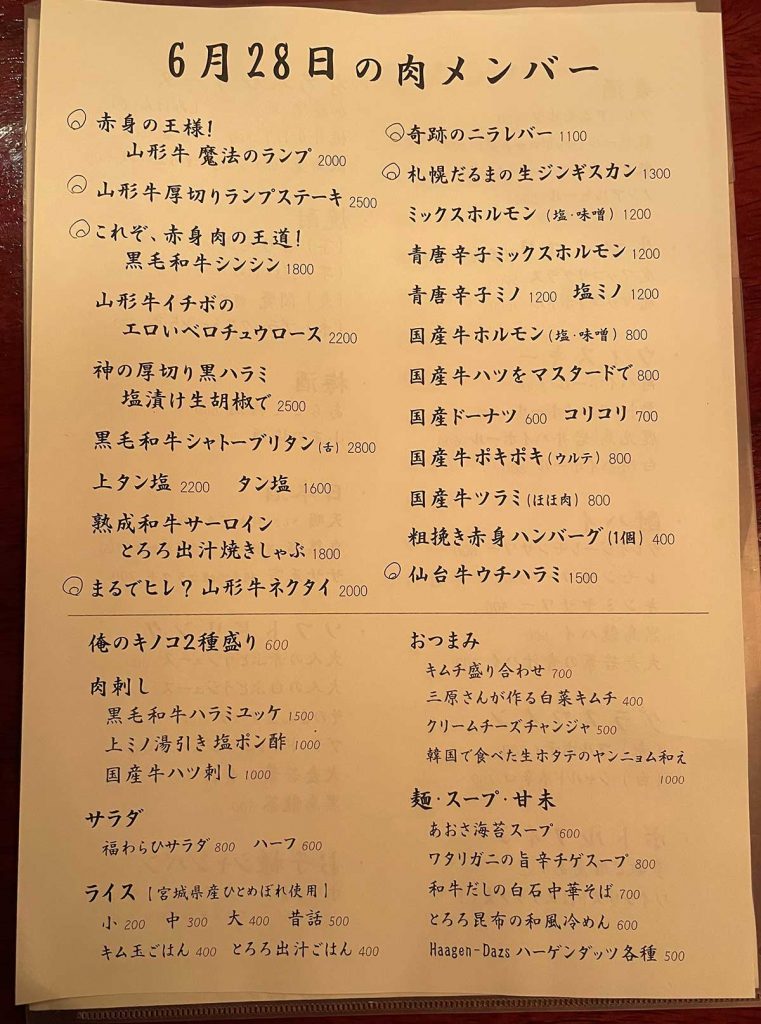 6月28日の肉メンバー
赤身の王様!
山形牛 魔法のランプ 2000
山形牛厚切りランプステーキ 2500
これぞ、赤身肉の王道!
黒毛和牛シンシン 1800
山形牛イチボの
エロいベロチュウロース 2200
神の厚切り黒ハラミ
塩漬け生胡椒で 2500
黒毛和牛シャトーブリタン(舌) 2800
上タン塩 2200 タン塩 1600
熟成和牛サーロイン
とろろ出汁焼きしゃぶ 1800
まるでヒレ? 山形牛ネクタイ 2000
奇跡のニラレバー 1100
札幌だるまの生ジンギスカン 1300
ミックスホルモン (塩・味噌) 1200
青唐辛子ミックスホルモン 1200
青唐辛子ミノ 1200 塩ミノ 1200
国産牛ホルモン(塩・味噌) 800
国産牛ハツをマスタードで 800
国産ドーナツ 600 コリコリ 700
国産牛ポキポキ(ウルテ) 800
国産牛ツラミ(ほほ肉) 800
粗挽き赤身ハンバーグ(1個) 400
仙台牛ウチハラミ 1500
俺のキノコ2種盛り 600
肉刺し
黒毛和牛ハラミユッケ 1500
上ミノ湯引き塩ポン酢 1000
国産牛ハツ刺し 1000
サラダ
福わらひサラダ 800 ハーフ 600
ライス [宮城県産ひとめぼれ使用]
小 200 中 300 大 400 昔話 500
キム玉ごはん 400 とろろ出汁ごはん 400
おつまみ
キムチ盛り合わせ 700
三原さんが作る白菜キムチ 400
クリームチーズチャンジャ 500
韓国で食べた生ホタテのヤンニョム和え
1000
麺・スープ・甘未
あおさ海苔スープ 600
ワタリガニの旨辛チゲスープ 800
和牛だしの白石中華そば 700
とろろ昆布の和風冷めん 600
Haagen-Dazs ハーゲンダッツ各種 500